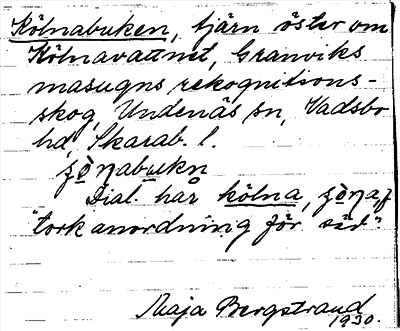 Kölnabuken, tjärn öster om
Kölnavattnet, Granviks
masugns rekognitions-
skog, Undenäs sn, Vadsbo
hd, Skarab. l.
Dial. har kölna, f
"torkanordning för säd".
Maja Bergstrand
1930.